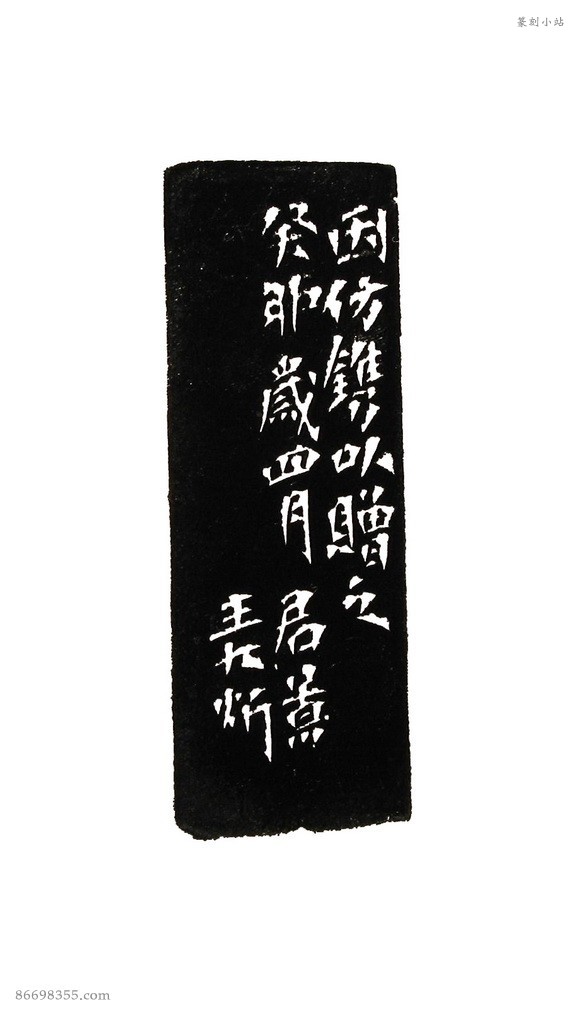 篆刻小站
因仿鐫以贈之
癸卯歲四月
炘
86698355.com